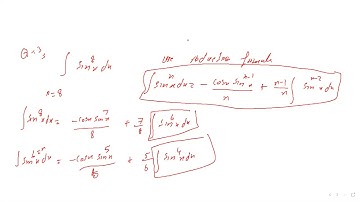 ∫ sin⁸x dx use reduction formula
n=8 ∫ sinⁿx dx = -cosx sinⁿ⁻¹x/n + n-1/n ∫ sinⁿ⁻²x dx
∫ sin⁸x dx = -cosx sin⁷x/8 + 7/8 ∫ sin⁶x dx
∫ sin⁶x dx = -cosx sin⁵x/6 + 5/6 ∫ sin⁴x dx